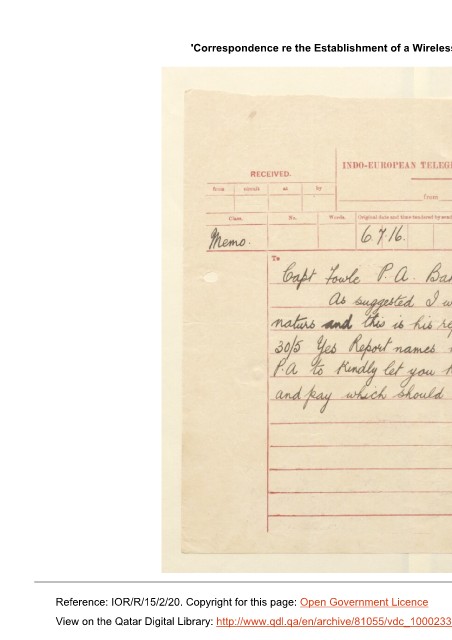 'Correspondence re the Establishment of a Wireless
INDO-EUROPEAN TELEG
RECEIVED.
from
at
by
from
Class.
No.
Words.
Original date and time
Memo.
6.7.16.
To
Capt Fowle P.A. Ba
As suggested I w
naturs and this is his re
30/5 Yes Report names
P.A to kindly let you
and pay which should
Reference: IOR/R/15/2/20. Copyright for this page: Open Government Licence
View on the Qatar Digital Library: http://www.qdl.qa/en/archive/81055/vdc_1000233